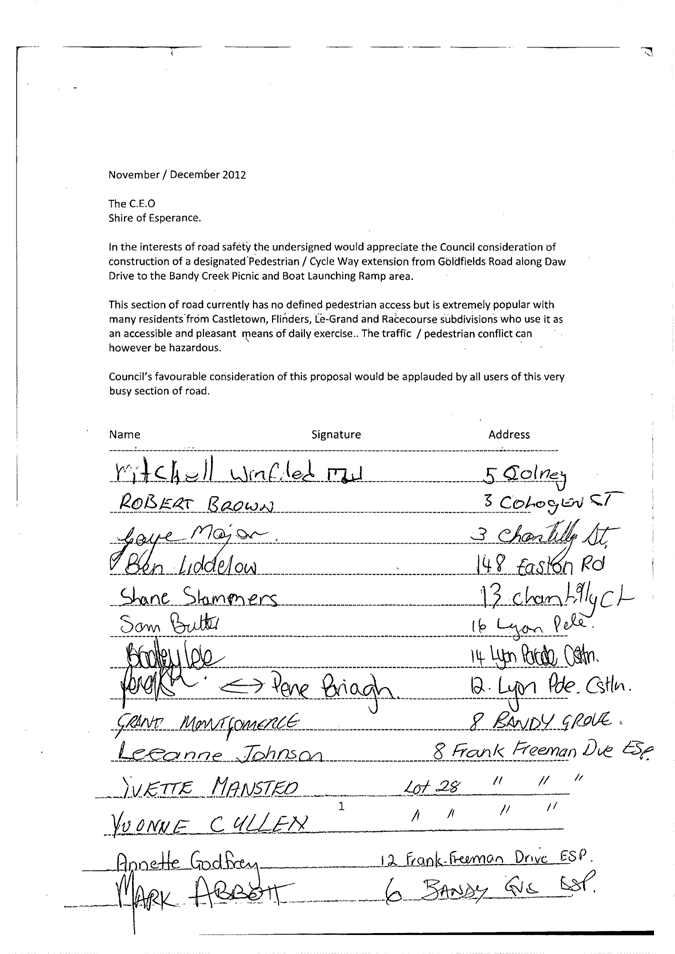 November / December 2012
The C.E.O
Shire of Esperance.
In the interests of road safety the undersigned would appreciate the Council consideration of
construction of a designated Pedestrian / Cycle Way extension from Goldfields Road along Daw
Drive to the Bandy Creek Picnic and Boat Launching Ramp area.
This section of road currently has no defined pedestrian access but is extremely popular with
many residents from Castletown, Flinders, Le-Grand and Racecourse subdivisions who use it as
an accessible and pleasant means of daily exercise.. The traffic / pedestrian conflict can
however be hazardous.
Council's favourable consideration of this proposal would be applauded by all users of this very
busy section of road.
Name Signature Address
Mitchell Winfiled MW 5 Colney
ROBERT BROWN 3 COLOGEN ST
Gaye Major. 3 Chantilly St.
Ben Liddelow 148 Easton Rd
Shane Stammers 13 Chantilly Ct
Sam Butter 16 Lyon Pde.
Bradley 14 Lyon Parade, Cstln.
<-> Pene Briagh 12. Lyon Pde. Cstln.
GRANT MONTGOMERIE 8 BANDY GROVE.
Leeanne Johnson 8 Frank Freeman Dve ESP
YVETTE MANSTED Lot 28 " " "
1
YVONNE CULLEN " " " "
Annette Godfrey 12 Frank-Freeman Drive ESP.
MARK ABBOTT 6 BANDY GVE ESP.